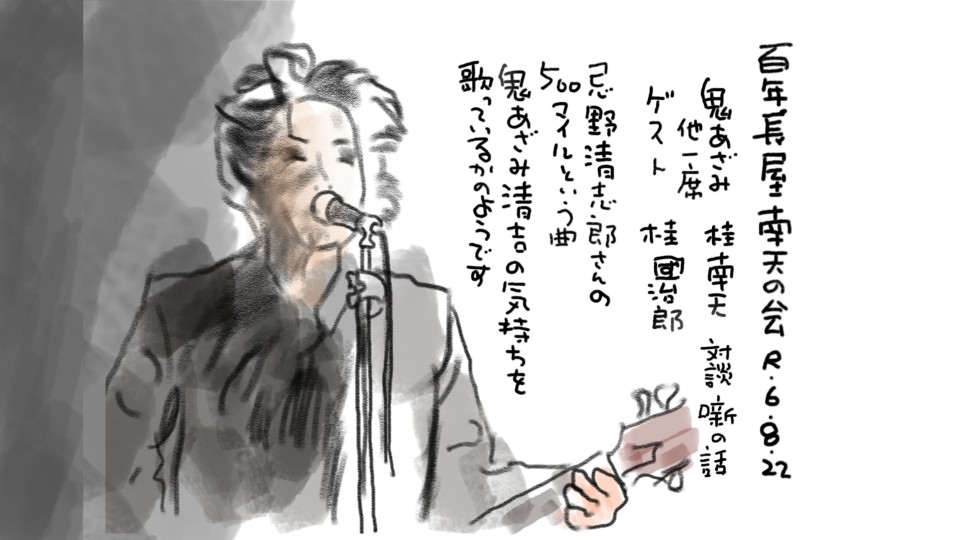 百年長屋 南天の会 R.6.8.22
鬼あざみ 桂南天 対談 噺の話
他一席
ゲスト 桂 團治郎
忌野清志郎さんの
500マイルという曲
鬼あざみ清吉の気持ちを
歌っているかのようです